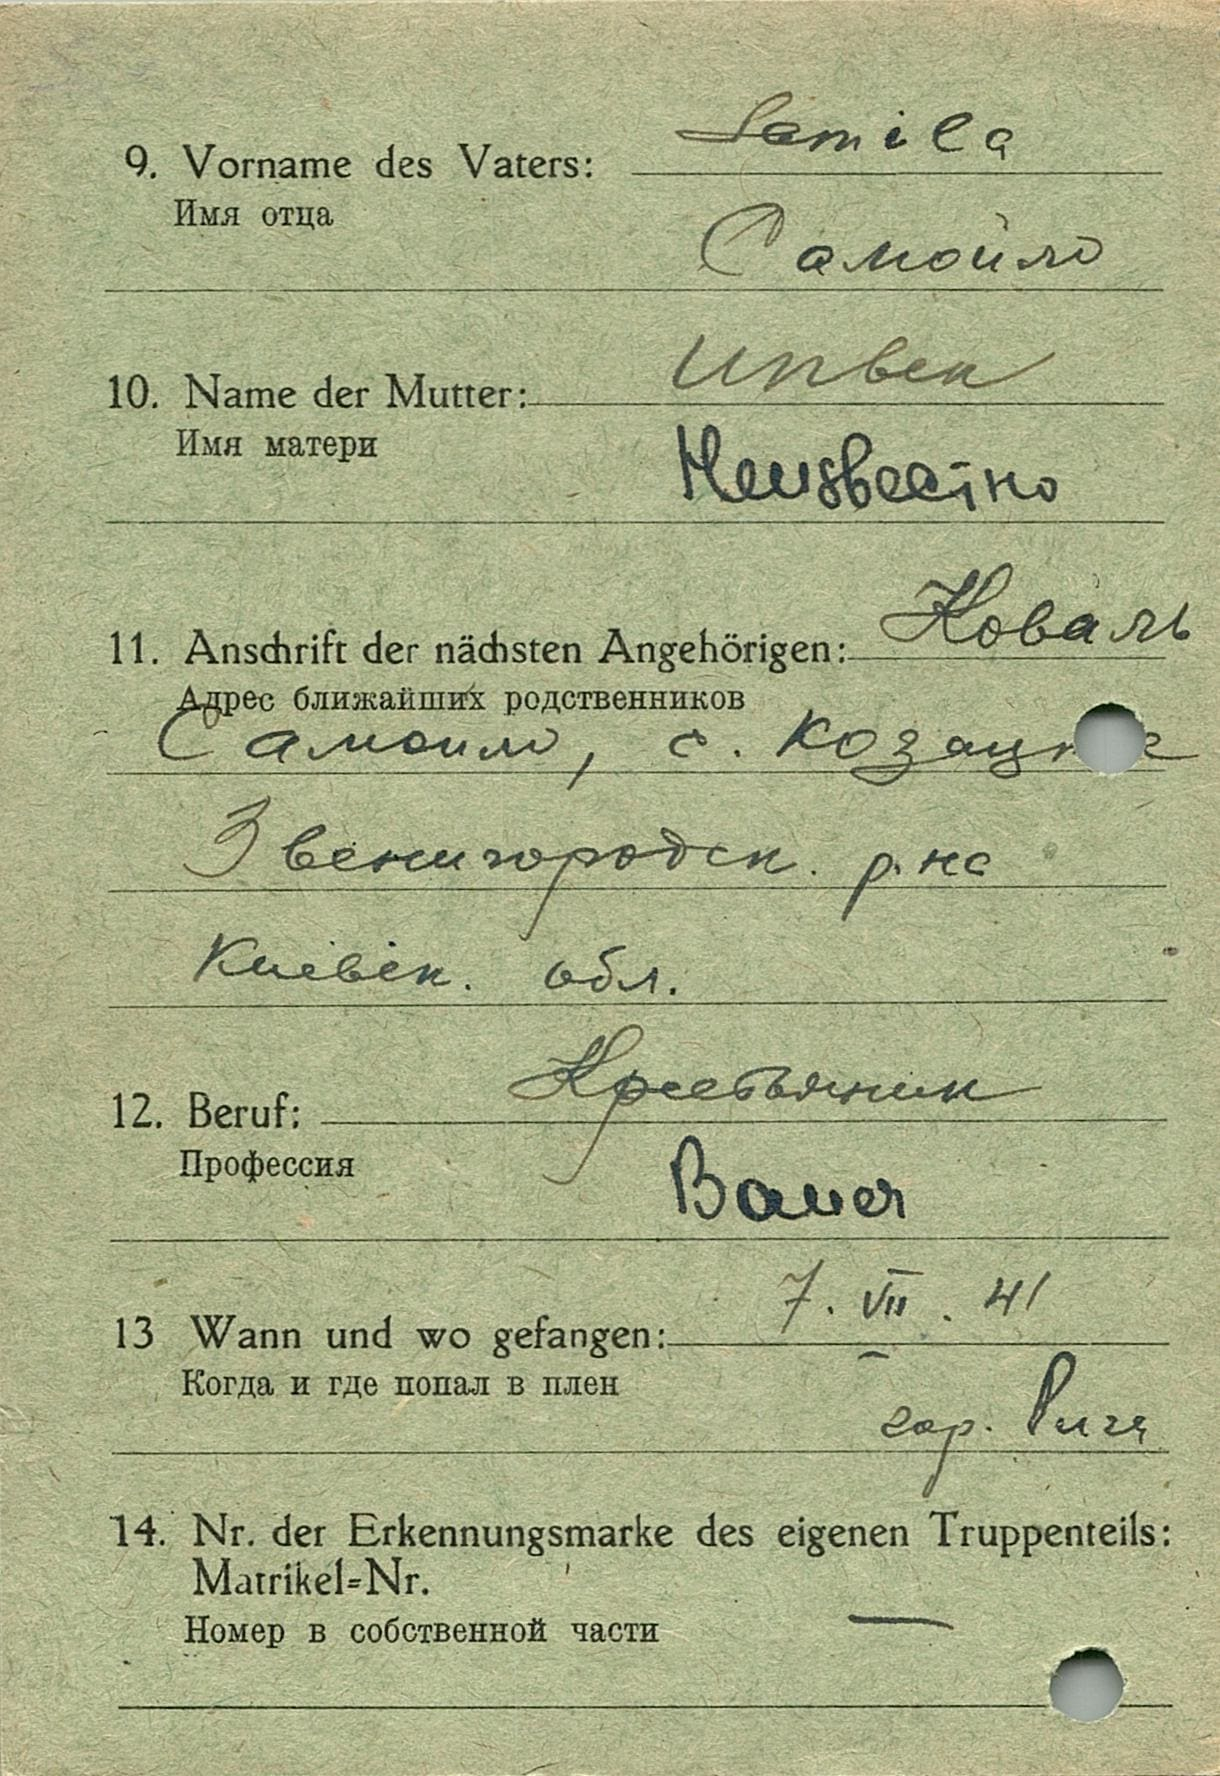 9. Vorname des Vaters: Samila
Имя отца
Самойло
10. Name der Mutter: Unbek
Имя матери
Неизвестно
11. Anschrift der nächsten Angehörigen: Коваль
Адрес ближайших родственников
Самоило, с. Козацкое
Звенигородск. р.на
Киевск. обл.
12. Beruf: Крестьянин
Профессия
Bauer
13 Wann und wo gefangen: 7. VII. 41
Когда и где попал в плен
гор. Рига
14. Nr. der Erkennungsmarke des eigenen Truppenteils:
Matrikel=Nr.
Номер в собственной части —